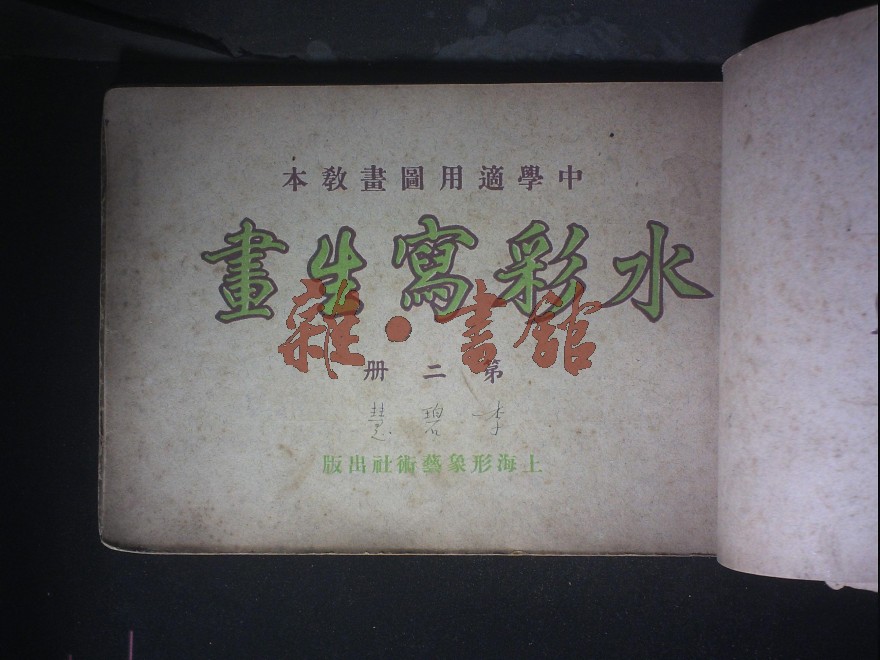 中學適用圖畫教本
水彩寫生畫
雜·書館
第二册
李碧慧
上海形象藝術社出版